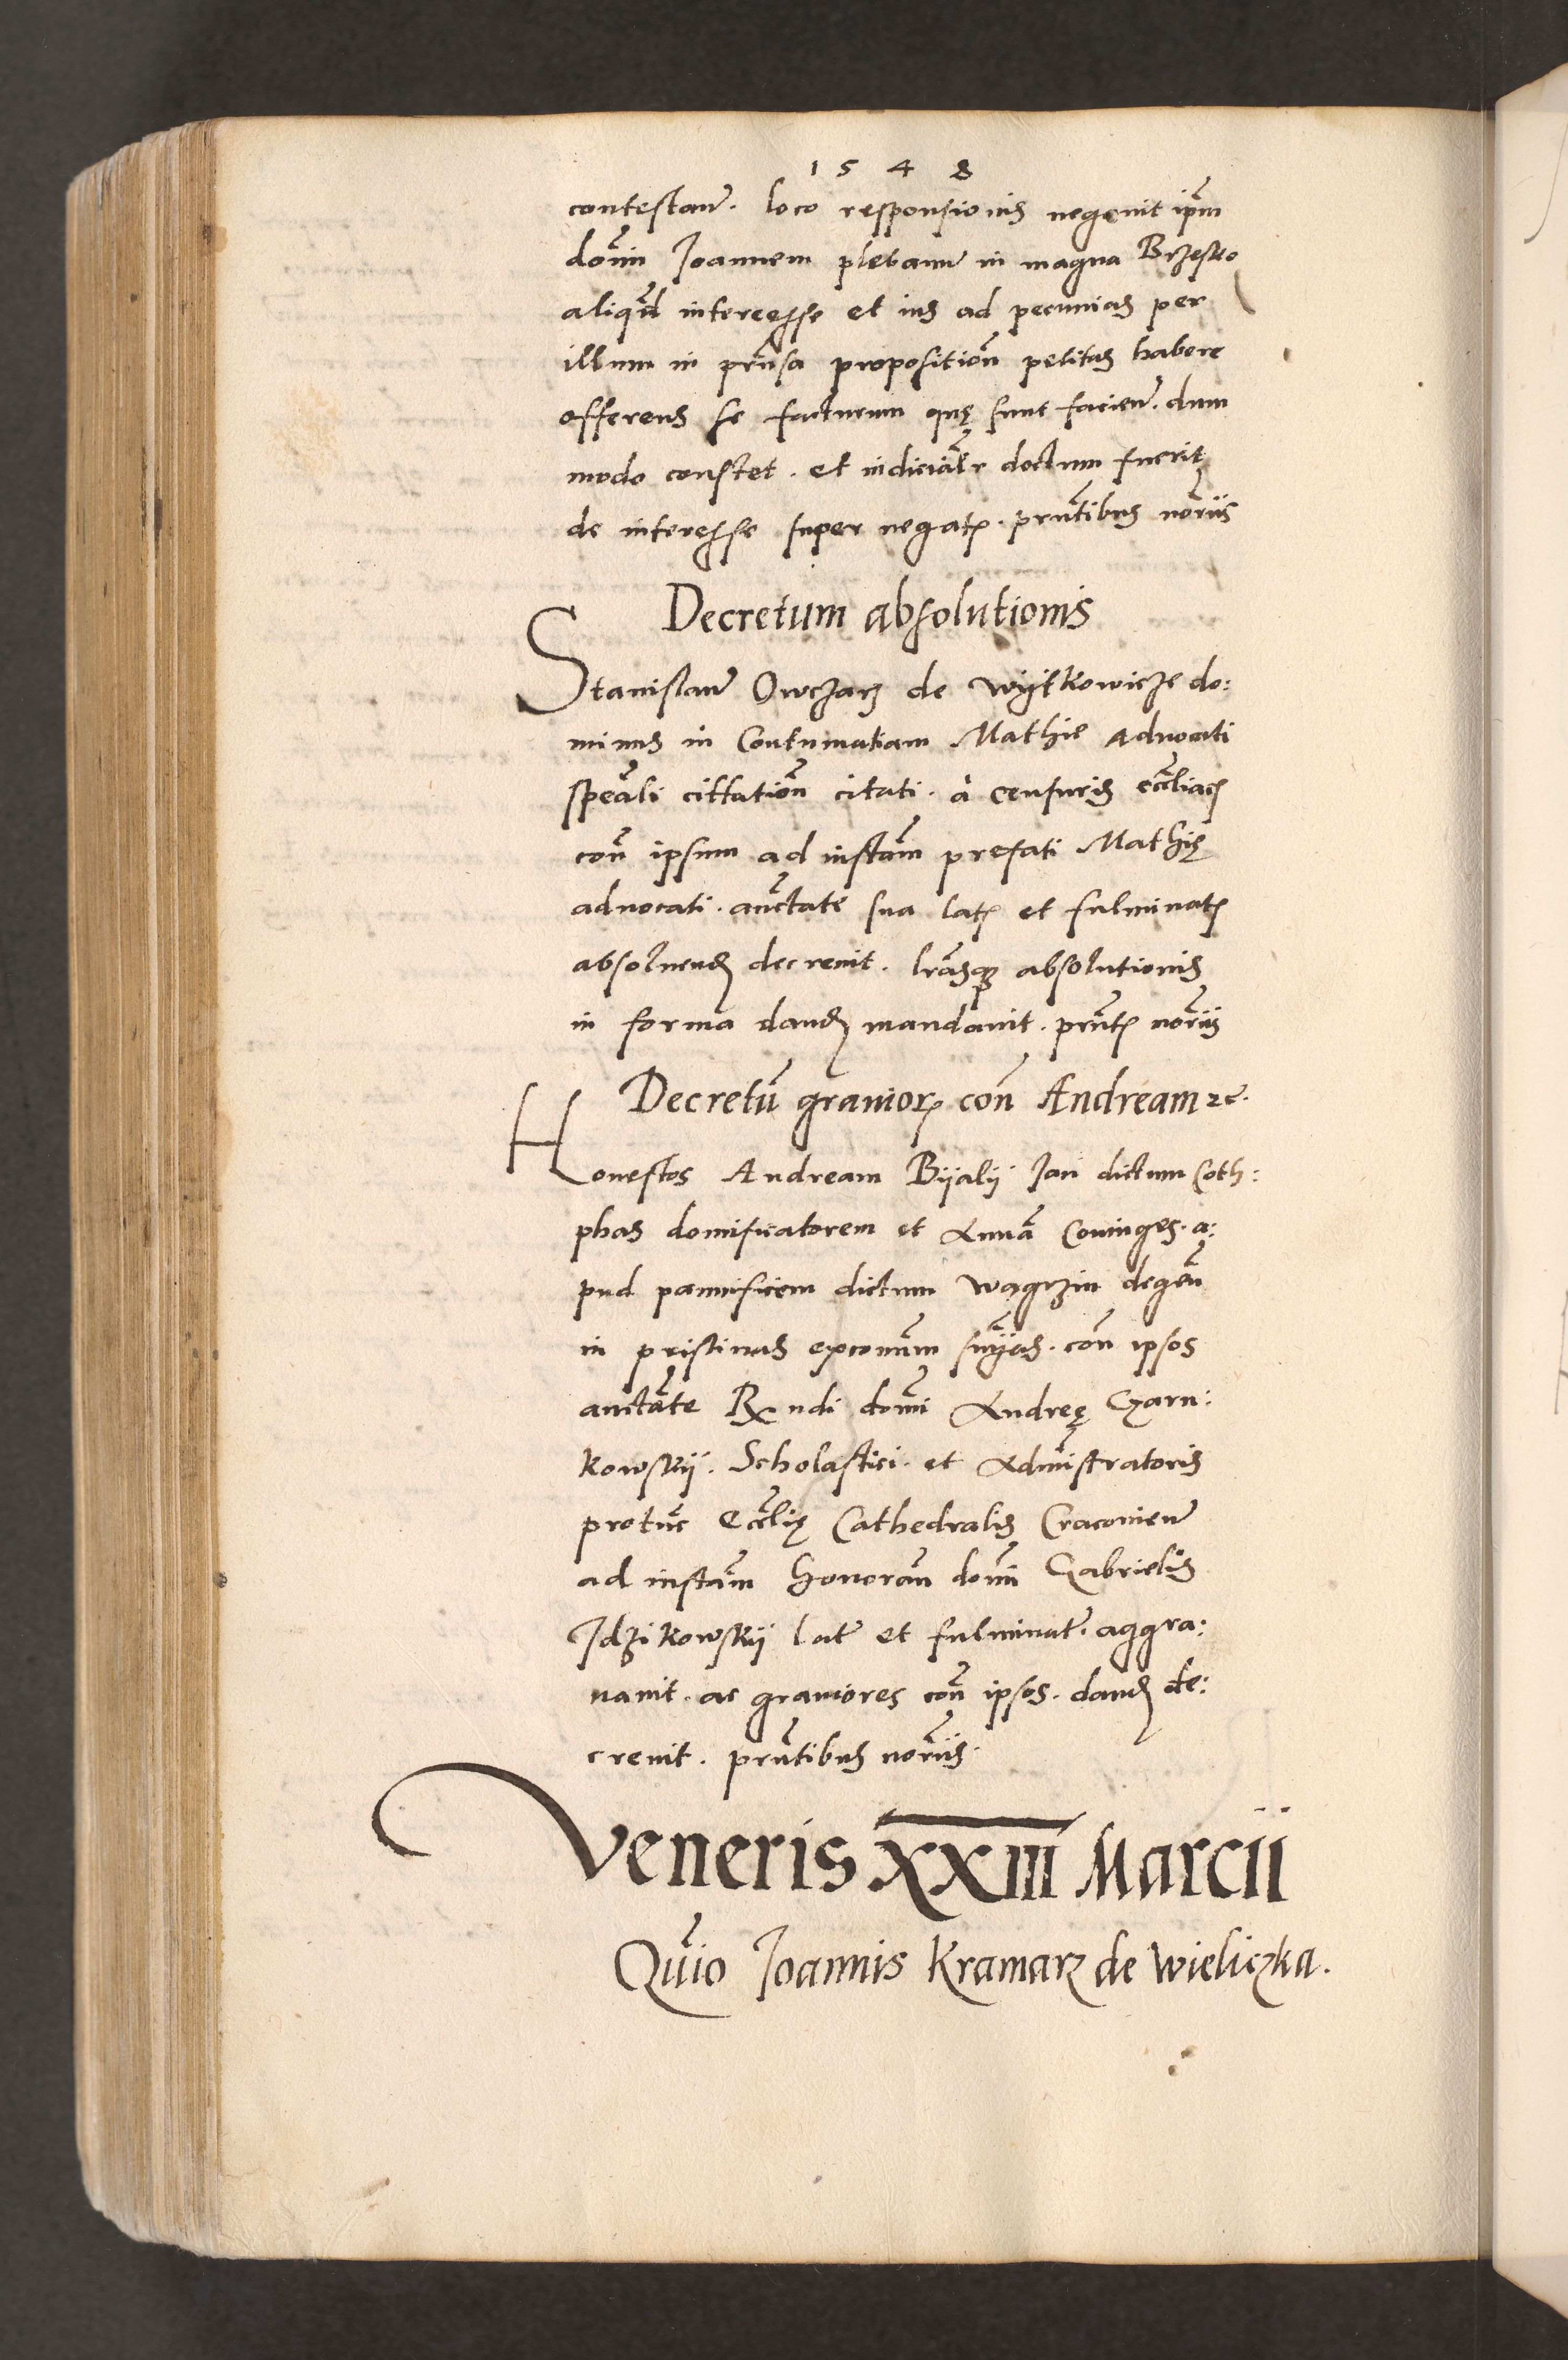 1548
contestan̄. loco responsionis negavit ip̄m
don̄m Joannem plebanū in magna Brzesko
aliquid̄ interesse et ius ad pecunias per
illum in prn̄sa proposition̄ petitas habere
offerens se facturum quę sunt facien̄. dum
modo constet. et iudicial̄r doctum fuerit
de interesse super negatꝭ. prn̄tibus nor̄iis
Decretum absolutionis
Stanislaū Owczarz de Wÿtkowicze do:
minus in Contumatiam Mathie Advocati
spec̄ali cittation̄ citati. à censuris eccl̄iacꝭ
con̄ ipsum ad instan̄ prefati Mathię
advocati. auc̄tate sua latꝭ et fulminatꝭ
absolvendꝭ decrevit. lr̄asqꝫ absolutionis
in forma dandꝭ mandavit. prn̄tꝭ nor̄iis
Decretū graviorꝭ con̄ Andream ꝛc̄.
Honestos Andream Bÿalÿ Jan dictum Coth:
phas domificatorem et Annā Coniuges. a:
pud pannificem dictum Wągrzin degen̄
in pristinas excoīnum sn̄ÿas. con̄ ipsos
auctāte Rndi don̄i Andreę Czarn:
kowskÿ. Scholastici. et Adm̄istratoris
protūc Eccl̄ię Cathedralis Cracovien̄
ad instan̄ Honoran̄ don̄i Gabrielis
Jdzikowskÿ lat̄ et fulminat̄. aggra:
vavit. ac graviores con̄ ipsos. dandꝭ de:
crevit. prn̄tibus nor̄iis.
Veneris XXIII Marcii
Qūio Joannis Kramarz de Wieliczka.